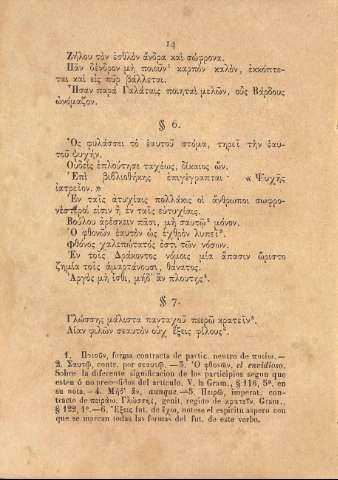 14
Ζήλου τὸν ἐσθλὸν ἄνδρα καὶ σώφρονα.
Πᾶν δένδρον μὴ ποιοῦν¹ καρπὸν καλὸν, ἐκκόπτε-
ται καὶ εἰς πῦρ βάλλεται.
Ἦσαν παρὰ Γαλάταις ποιηταὶ μελῶν, οὓς Βάρδους
ὠνόμαζον.
§ 6.
Ὃς φυλάσσει τὸ ἑαυτοῦ στόμα, τηρεῖ τὴν ἑαυ-
τοῦ ψυχήν.
Οὐδεὶς ἐπλούτησε ταχέως, δίκαιος ὤν.
Ἐπὶ βιβλιοθήκης ἐπιγέγραπται· « Ψυχῆς
ἰατρεῖον. »
Ἐν ταῖς ἀτυχίαις πολλάκις οἱ ἄνθρωποι σωφρο-
νέστεροί εἰσιν ἢ ἐν ταῖς εὐτυχίαις.
Βούλου ἀρέσκειν πᾶσι, μὴ σαυτῷ² μόνον.
Ὁ φθονῶν³ ἑαυτὸν ὡς ἐχθρὸν λυπεῖ
Φθόνος χαλεπώτατός ἐστι τῶν νόσων.
Ἐν τοῖς Δράκοντος νόμοις μία ἅπασιν ὥριστο
ζημία τοῖς ἁμαρτάνουσι, θάνατος.
Ἀργὸς μὴ ἴσθι, μηδ᾽ ἂν πλουτῇς⁴.
§ 7.
Γλώσσης μάλιστα πανταχοῦ πειρῶ κρατεῖν⁵.
Λίαν φιλῶν σεαυτὸν οὐχ ἕξεις φίλους⁶.
1. Ποιοῦν, forma contracta de partic. neutro de ποιέω.—
2. Σαυτῷ, contr. por σεαυτῷ.—3. Ὁ φθονῶν, el envidioso.
Sobre la diferente significacion de los participios segun que
esten ó no precedidos del artículo, V. la Gram., § 116, 5º. en
su nota.—4. Μηδ᾽ ἂν, aunque.—5. Πειρῶ, imperat. con-
tracto de πειράω: Γλώσσης, genit. regido de κρατεῖν. Gram.,
§ 122, 1º.—6. Ἕξεις fut. de ἔχω, notese el espíritu aspero con
que se marcan todas las formas del fut. de este verbo.